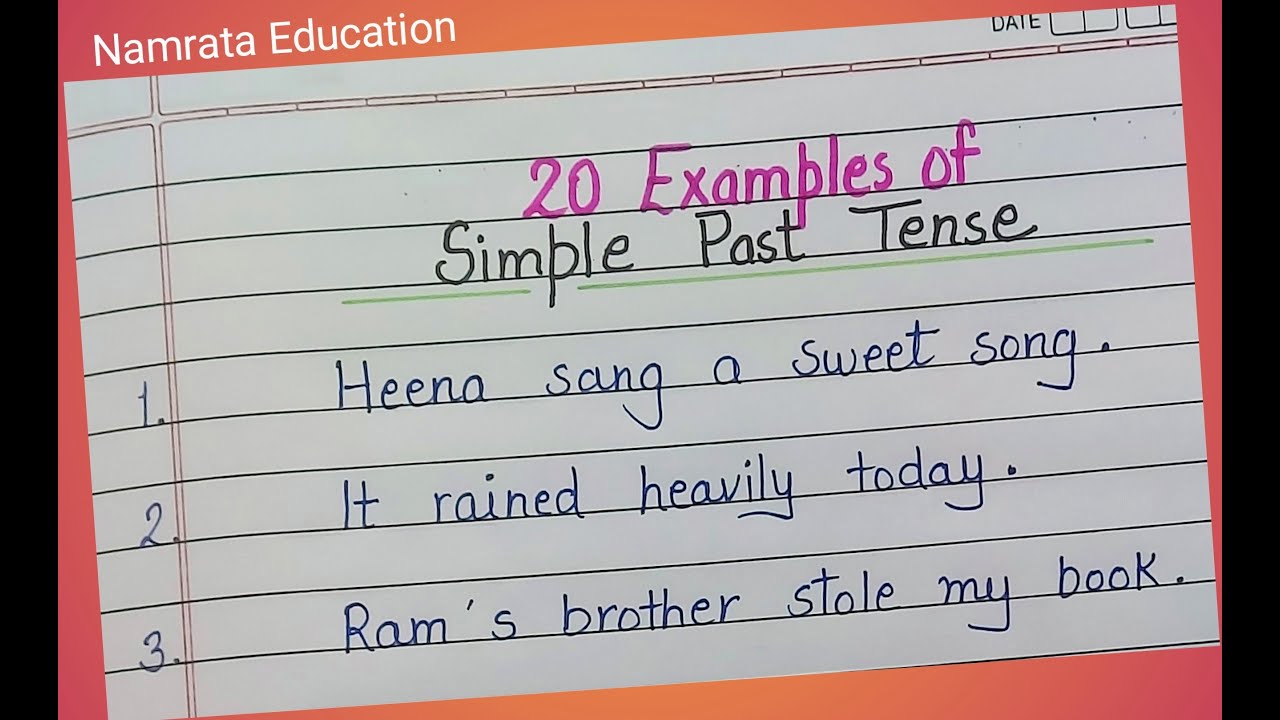 Namrata Education
DATE
20 Examples of
Simple Past Tense
1. Heena sang a sweet song.
2. It rained heavily today.
3. Ram's brother stole my book.